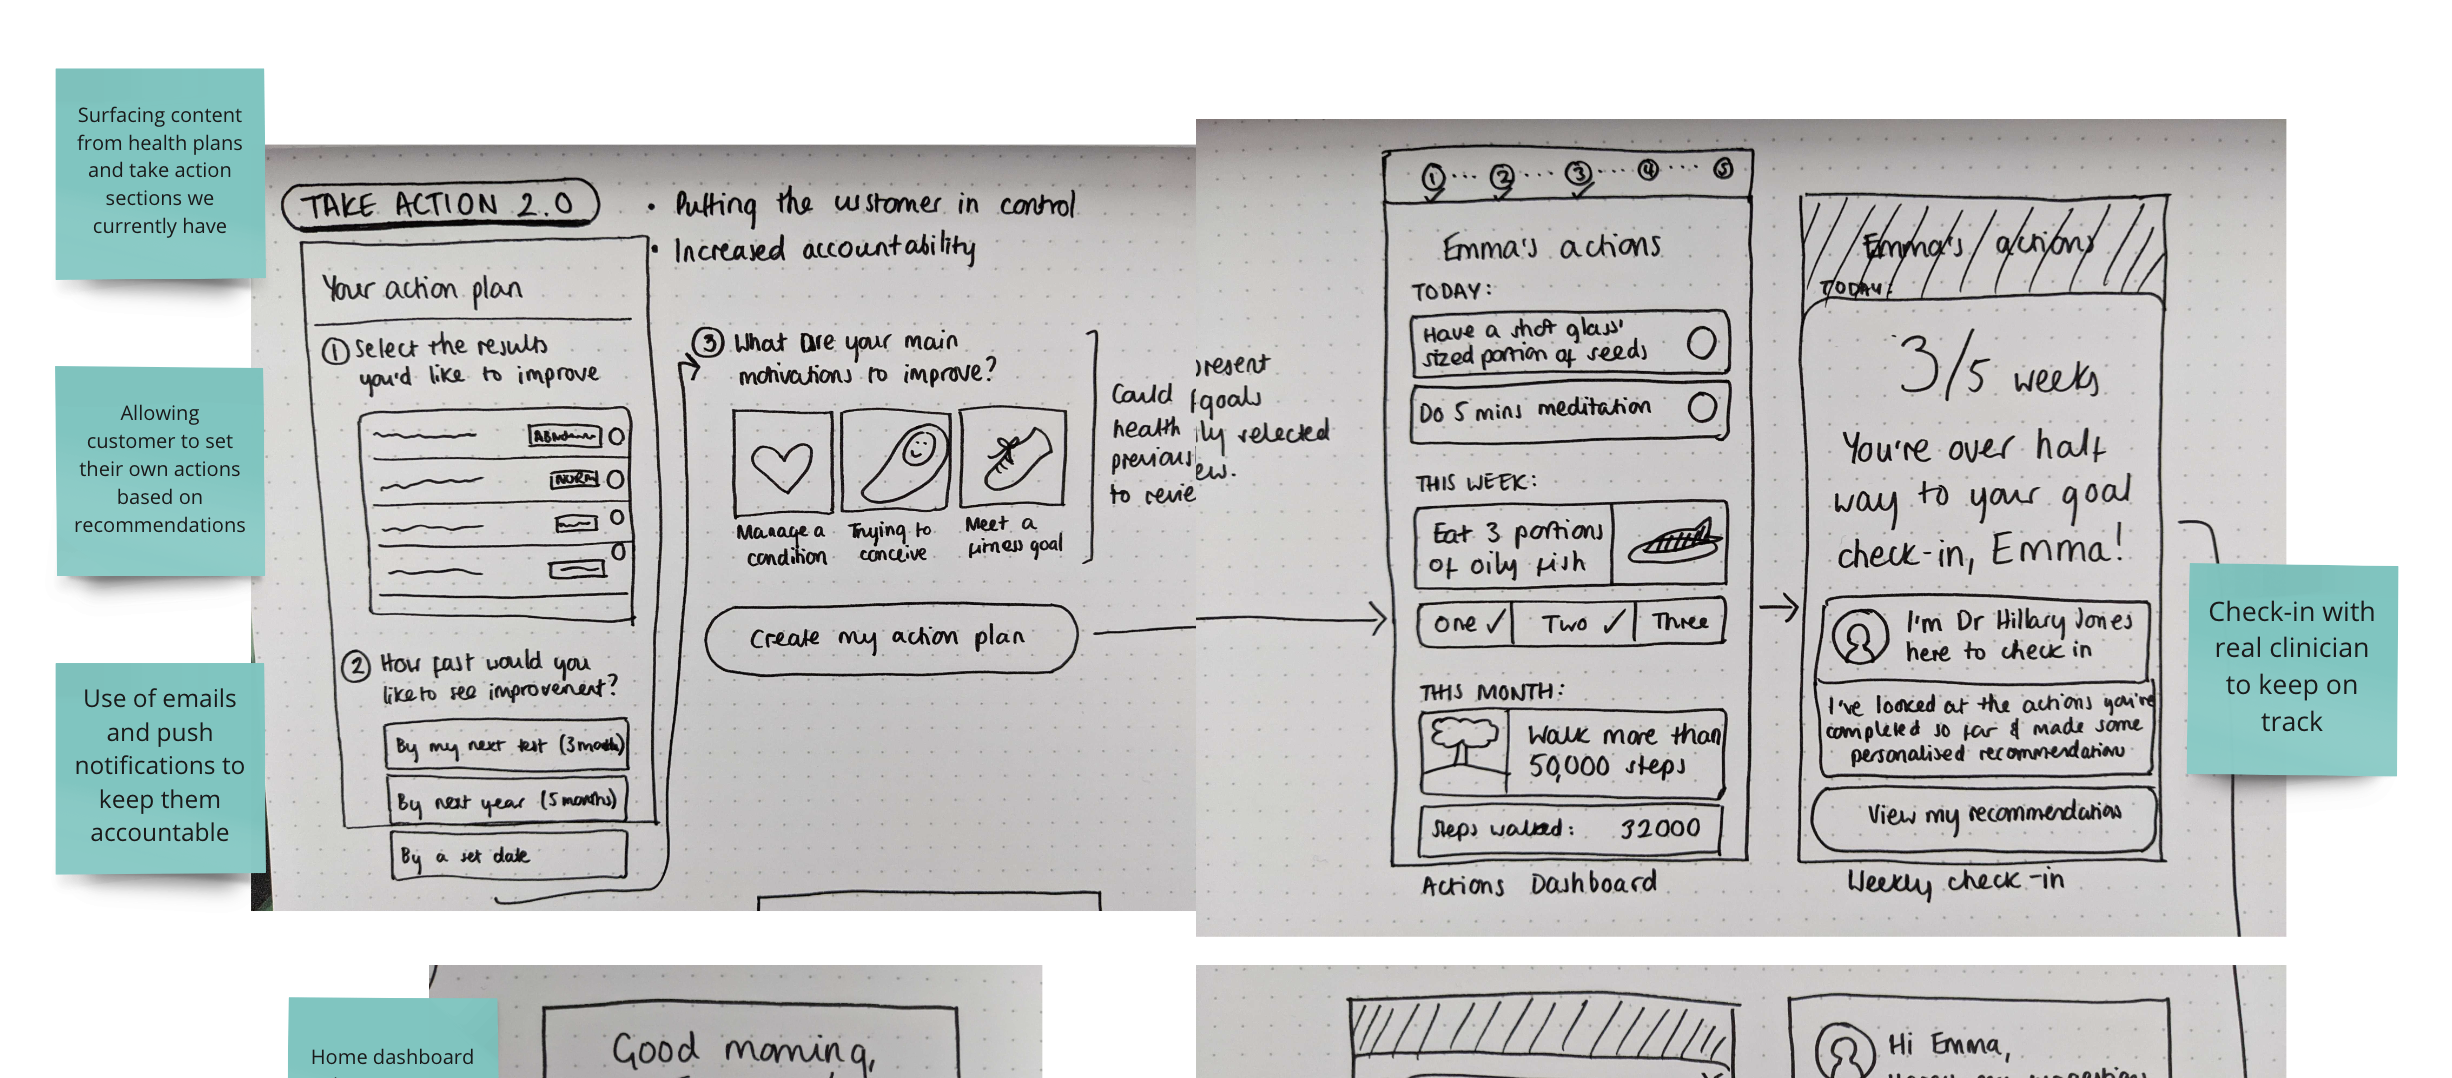 Surfacing content
from health plans
and take action
sections we
currently have
Allowing
customer to set
their own actions
based on
recommendations
Use of emails
and push
notifications to
keep them
accountable
TAKE ACTION 2.0
• Putting the customer in control
• Increased accountability
Your action plan
① Select the results
you'd like to improve
NORM
② How fast would you
like to see improvement?
By my next test (3 months)
By next year (5 months)
By a set date
③ What are your main
motivations to improve?
Manage a
condition
Trying to
conceive
Meet a
fitness goal
Could
health
previous
to revie
Create my action plan
present
goals
lly selected
ew.
① ② ③ ④ ⑤
Emma's actions
TODAY:
Have a shot glass'
sized portion of seeds
Do 5 mins meditation
THIS WEEK:
Eat 3 portions
of oily fish
One ✓ Two ✓ Three
THIS MONTH:
Walk more than
50,000 steps
Steps walked: 32000
Actions Dashboard
Emma's actions
TODAY:
3/5 weeks
You're over half
way to your goal
check-in, Emma!
I'm Dr Hillary Jones
here to check in
I've looked at the actions you've
completed so far & made some
personalised recommendations
View my recommendations
Weekly check-in
Check-in with
real clinician
to keep on
track
Home dashboard
Good morning,
Hi Emma,